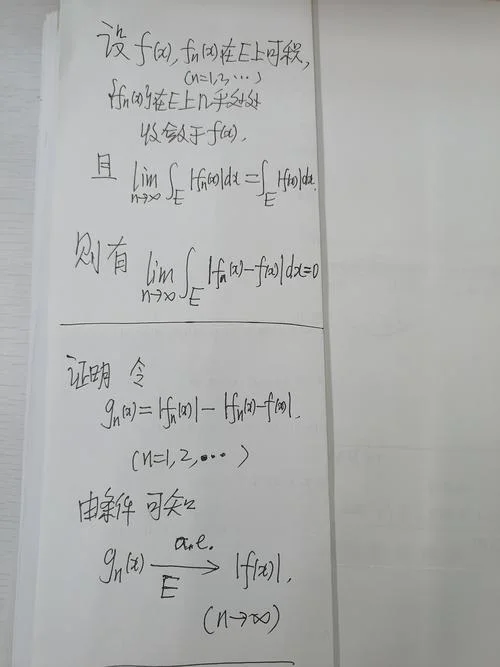 设 f(x), fn(x)在E上可积,
(n=1,2,…)
{fn(x)}在E上几乎处处
收敛于f(x),
且 lim n→∞ ∫E |fn(x)|dx = ∫E |f(x)|dx.
则有 lim n→∞ ∫E |fn(x)-f(x)|dx=0
证明 令
gn(x)=|fn(x)|-|fn(x)-f(x)|.
(n=1,2,…)
由条件可知
gn(x) a.e.→E |f(x)|.
(n→∞)